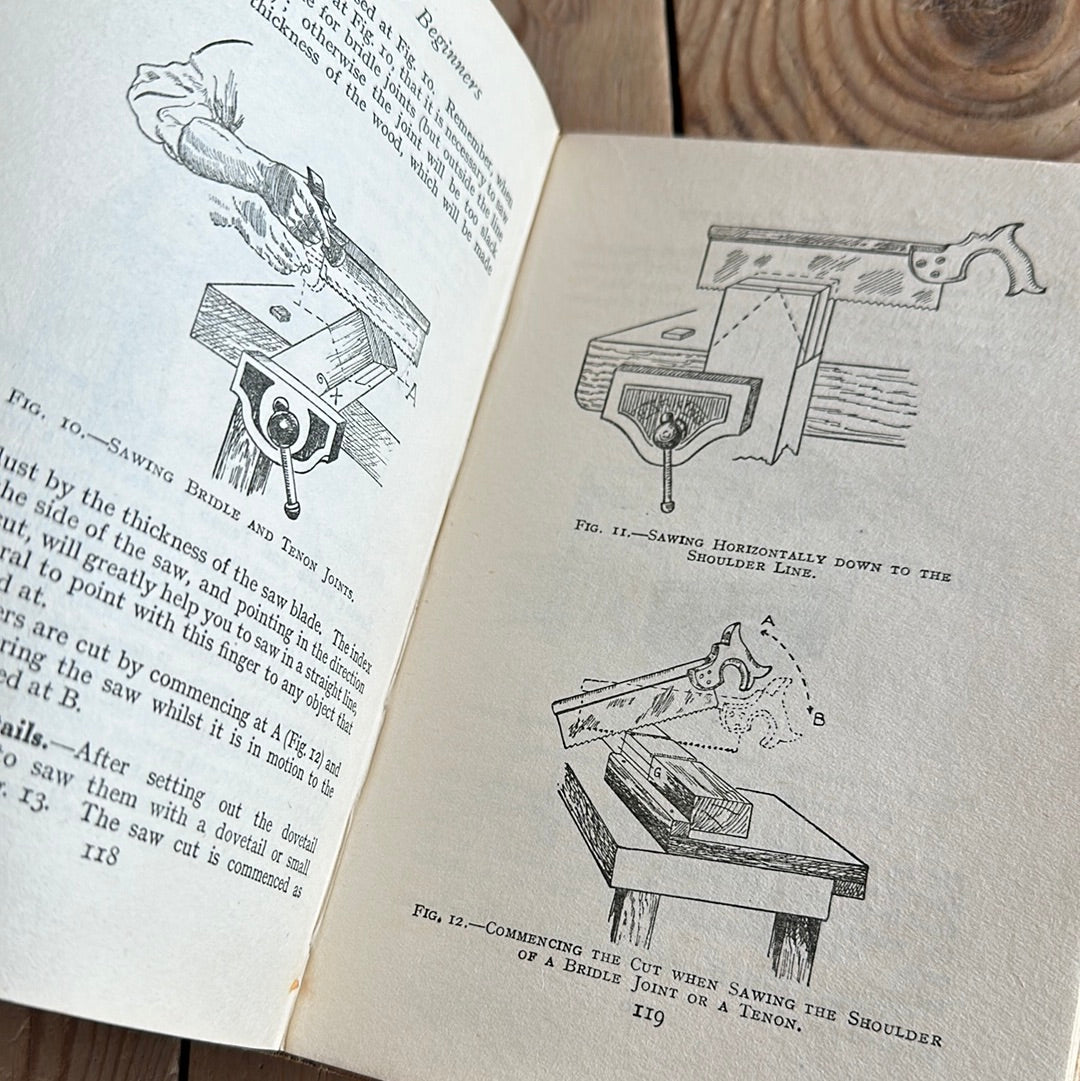 Beginners
sed at Fig. 10. Remember, when
at Fig. 10, that it is necessary to saw
e for bridle joints (but outside the line
; otherwise the joint will be too slack
thickness of the wood, which will be made
A
X
FIG. 10.—SAWING BRIDLE AND TENON JOINTS.
lust by the thickness of the saw blade. The index
the side of the saw, and pointing in the direction
cut, will greatly help you to saw in a straight line,
ral to point with this finger to any object that
d at.
ers are cut by commencing at A (Fig. 12) and
ring the saw whilst it is in motion to the
ed at B.
ails.—After setting out the dovetail
to saw them with a dovetail or small
. 13. The saw cut is commenced as
118
FIG. 11.—SAWING HORIZONTALLY DOWN TO THE
SHOULDER LINE.
A
B
G
FIG. 12.—COMMENCING THE CUT WHEN SAWING THE SHOULDER
OF A BRIDLE JOINT OR A TENON.
119